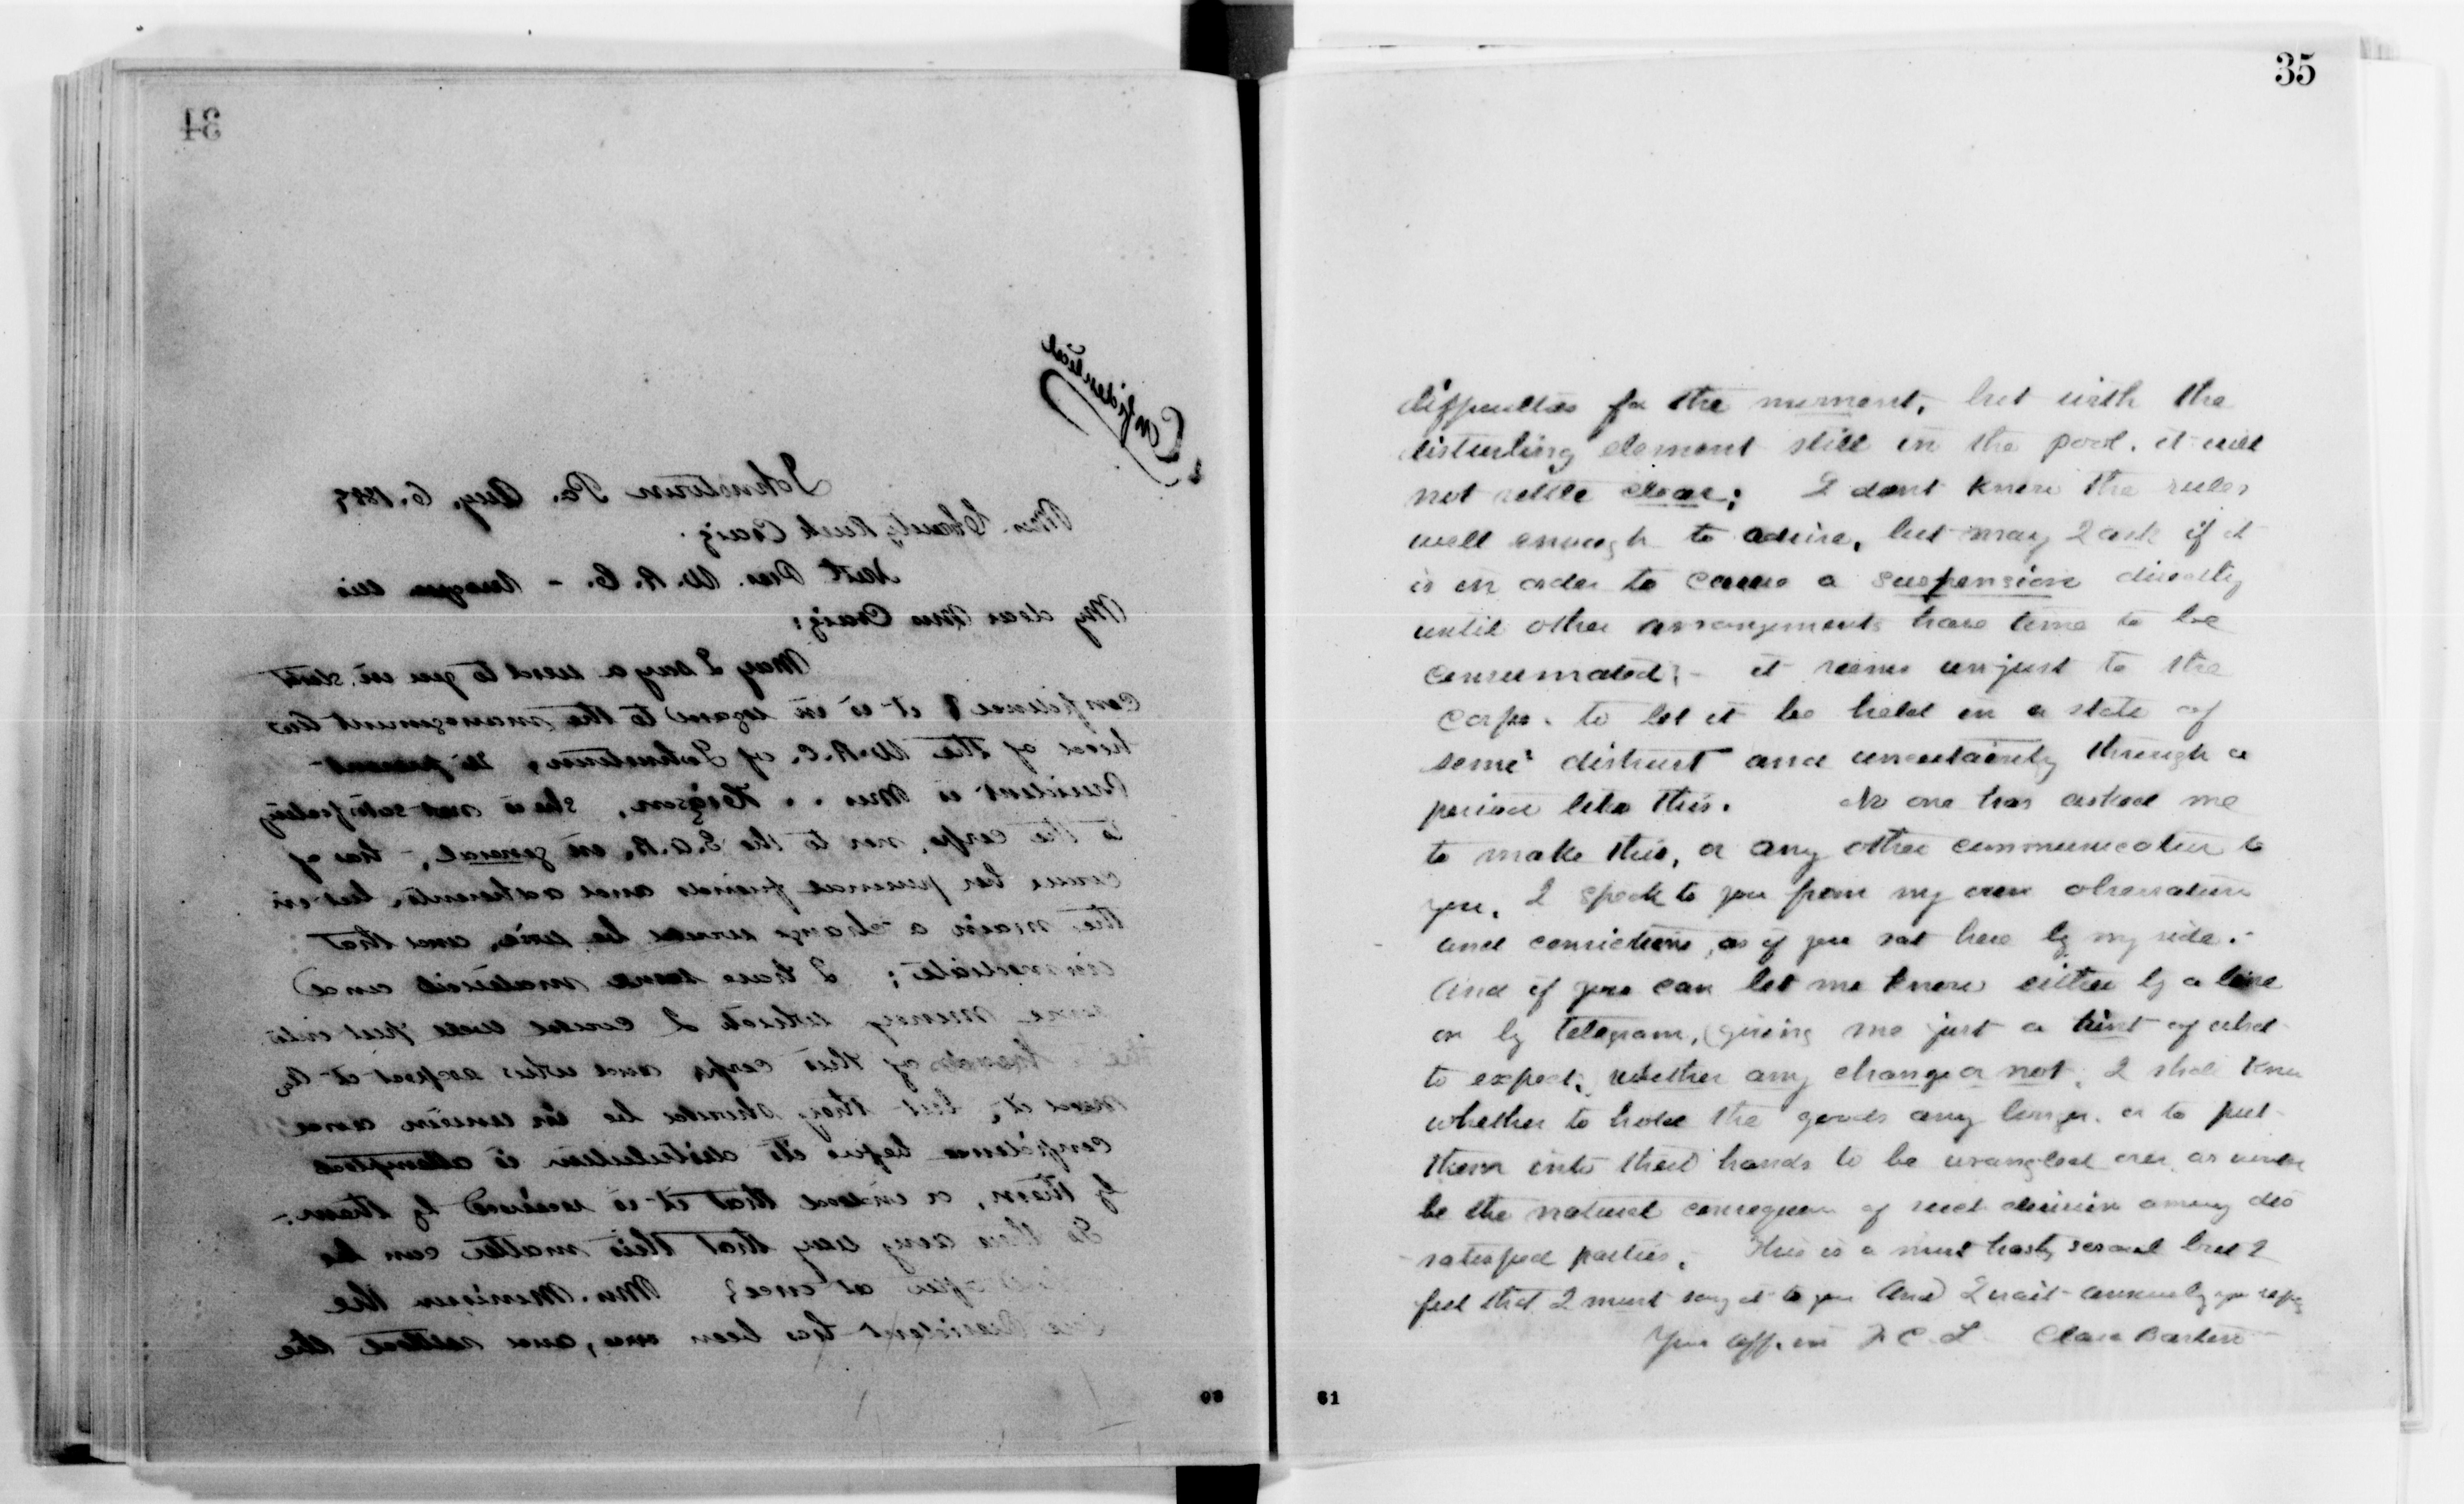 34
Confidential
Johnstown Pa. Aug. 6. 1889
Mrs. Charity Rusk Craig.
Natl Pres. W. R. C. -
My dear Mrs Craig:
May I say a word to you in strict
confidence? it is in regard to the management
head of the W.R.C. of Johnstown, its present
President is Mrs. Higson, she is not satisfactory
to the corps, nor to the G.A.R. in general, - has of
course her personal friends and adherents, but in
the main a change would be wise, and that
immediate; I have some material and
some money which I could well put into
the hands of this corps and who expect it &
need it, but they should be in union and
confidence before its distribution is attempted
by them, or indeed that it is received by them.-
Is there any way that this matter can be
at once? Mrs. Morrison the
President has been over, and settled the
35
difficulties for the moment, but with the
disturbing element still in the pool. it will
not settle clear; I dont know the rules
well enough to advise, but may I ask if it
is in order to cause a suspension directly
until other arrangements have time to be
consumated; - it seems unjust to the
corps. to let it be held in a state of
semi distrust and uncertainty through a
period like this. No one has asked me
to make this, or any other communication to
you, I speak to you from my own observation
and convictions, as if you sat here by my side.-
And if you can let me know either by a line
or by telegram, (giving me just a hint of what
to expect, whether any change or not, I shall know
whether to hold the goods any longer. or to put
them into their hands to be wrangled over as would
be the natural consequence of such division among dis
-satisfied parties. This is a most hasty scrawl but I
feel that I must say it to you And I wait anxiously your reply
Your aff. in F. C. L Clara Barton
61